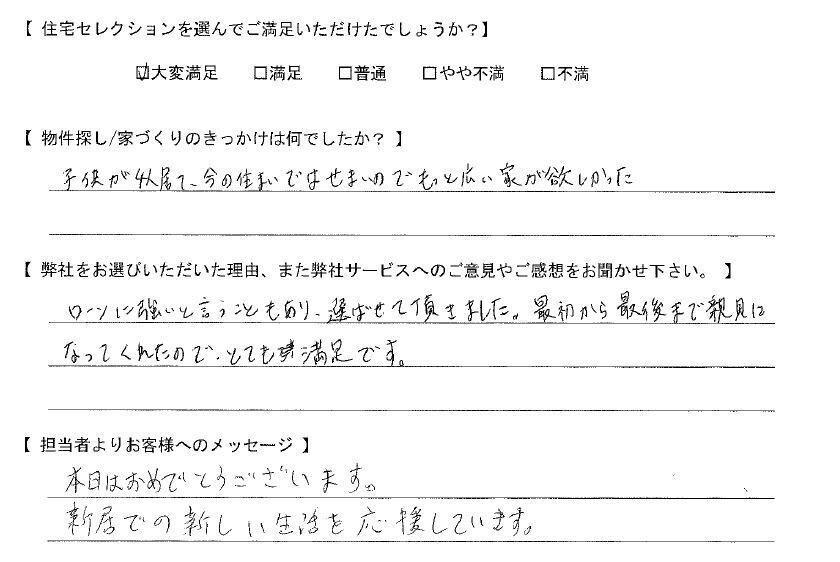 【 住宅セレクションを選んでご満足いただけたでしょうか？】
☑大変満足 □満足 □普通 □やや不満 □不満
【 物件探し/家づくりのきっかけは何でしたか？ 】
子供が4人居て、今の住まいではせまいのでもっと広い家が欲しかった
【 弊社をお選びいただいた理由、また弊社サービスへのご意見やご感想をお聞かせ下さい。 】
ローンに強いと言うこともあり、選ばせて頂きました。最初から最後まで親見に
なってくれたので、とても満足です。
【 担当者よりお客様へのメッセージ 】
本日はおめでとうございます。
新居での新しい生活を応援しています。